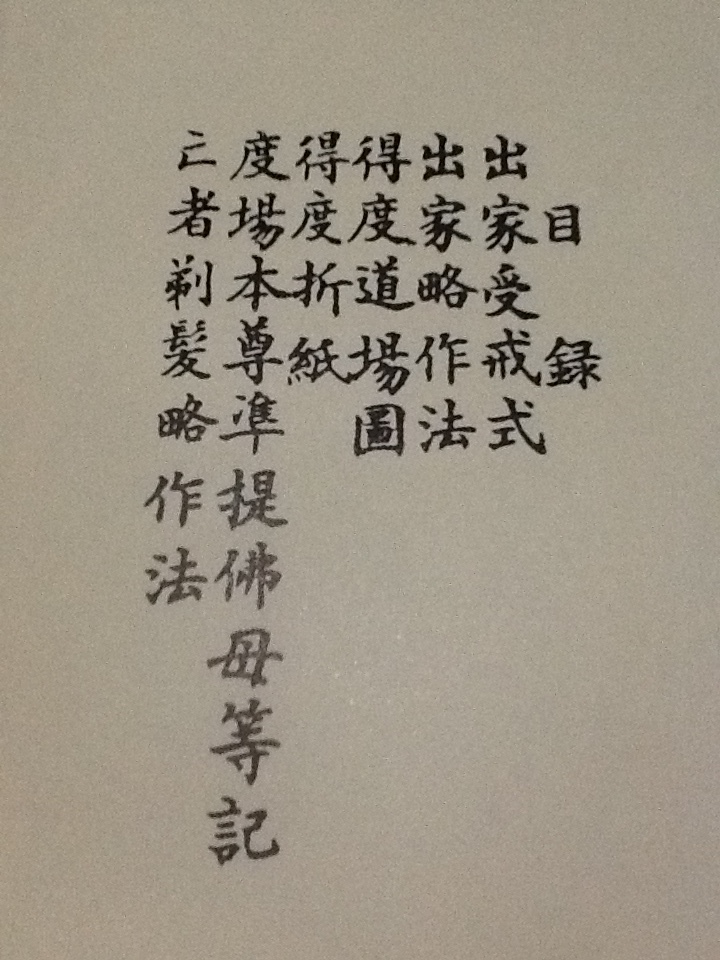 目録
出家受戒式
出家略作法
得度道場圖
得度折紙
度場本尊準提佛母等記
亡者剃髪略作法